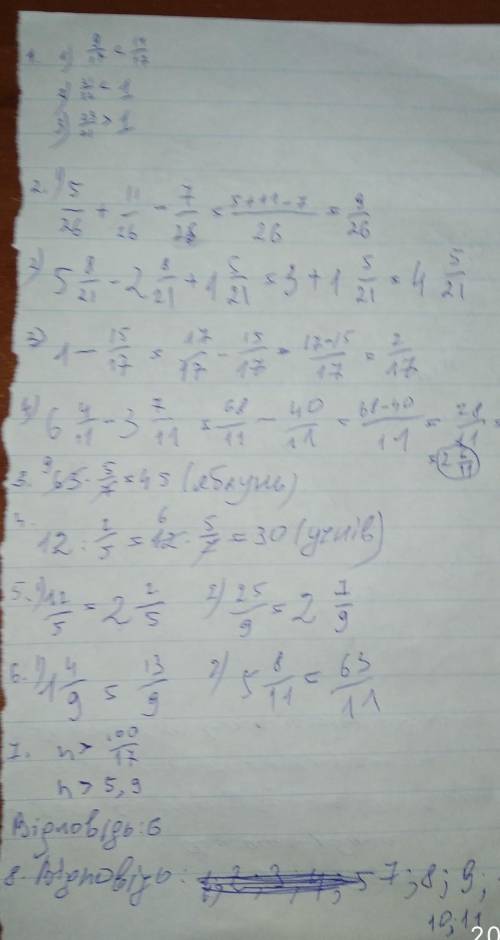 2. 1) 5/26 + 11/26 - 7/26 = 5+11-7/26 = 9/26
2) 5 8/21 - 2 8/21 + 1 5/21 = 3 + 1 5/21 = 4 5/21
3) 1 - 15/17 = 17/17 - 15/17 = 17-15/17 = 2/17
4) 6 2/11 - 3 7/11 = 68/11 - 40/11 = 68-40/11 = 28/11 =
= 2 6/11
3. 63 · 5/7 = 45 (яблунь)
4. 12 : 2/5 = 12 · 5/2 = 30 (учнів)
5. 1) 12/5 = 2 2/5 2) 25/9 = 2 7/9
6. 1) 1 4/9 = 13/9 2) 5 8/11 = 63/11
7. n > 100/17
n > 5,9
Відповідь: 6
8. Відповідь: 7; 8; 9;
10; 11
20